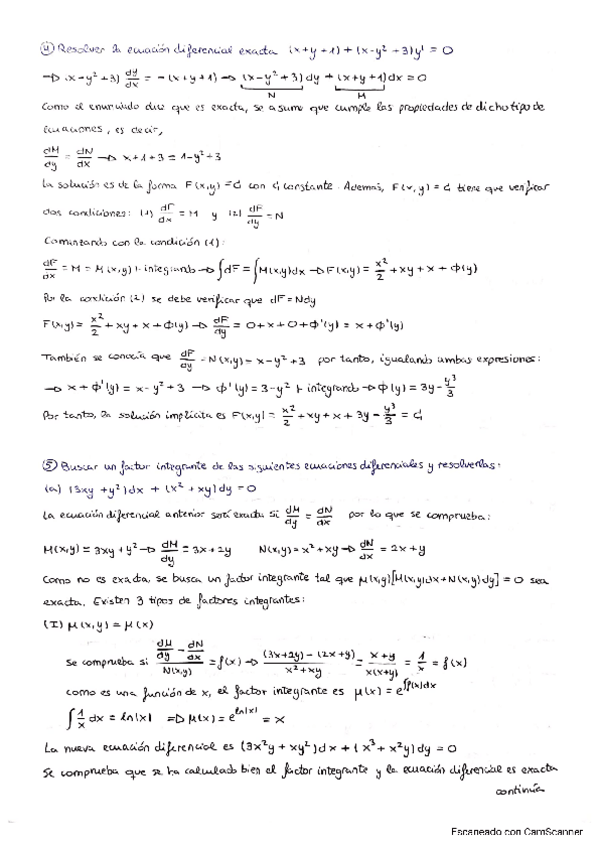 ④ Resolver la ecuación diferencial exacta (x+y+1)+(x-y²+3)y' = 0
→ (x-y²+3) dy/dx = -(x+y+1) → (x-y²+3)dy + (x+y+1)dx = 0
N M
Como el enunciado dice que es exacta, se asume que cumple las propiedades de dicho tipo de
ecuaciones, es decir,
dM/dy = dN/dx → x+1+3 = 1-y²+3
La solución es de la forma F(x,y) = C₁ con C₁ constante. Además, F(x,y) = C₁ tiene que verificar
dos condiciones: (1) dF/dx = M y (2) dF/dy = N
Comenzando con la condición (1):
dF/dx = M = M(x,y) integrando → ∫dF = ∫M(x,y)dx → F(x,y) = x²/2 + xy + x + Φ(y)
Por la condición (2) se debe verificar que dF = Ndy
F(x,y) = x²/2 + xy + x + Φ(y) → dF/dy = 0+x+0+Φ'(y) = x+Φ'(y)
También se conocía que dF/dy = N(x,y) = x-y²+3 por tanto, igualando ambas expresiones:
→ x+Φ'(y) = x-y²+3 → Φ'(y) = 3-y² integrando → Φ(y) = 3y - y³/3
Por tanto, la solución implícita es F(x,y) = x²/2 + xy + x + 3y - y³/3 = C₁
⑤ Buscar un factor integrante de las siguientes ecuaciones diferenciales y resolverlas:
(a) (3xy + y²)dx + (x² + xy)dy = 0
La ecuación diferencial anterior será exacta si dM/dy = dN/dx por lo que se comprueba:
M(x,y) = 3xy + y² → dM/dy = 3x + 2y N(x,y) = x² + xy → dN/dx = 2x + y
Como no es exacta, se busca un factor integrante tal que μ(x,y)[M(x,y)dx + N(x,y)dy] = 0 sea
exacta. Existen 3 tipos de factores integrantes:
(I) μ(x,y) = μ(x)
se comprueba si (dM/dy - dN/dx)/N(x,y) = f(x) → ((3x+2y) - (2x+y))/(x²+xy) = (x+y)/(x(x+y)) = 1/x = f(x)
como es una función de x, el factor integrante es μ(x) = e^∫f(x)dx
∫1/x dx = ln|x| ⇒ μ(x) = e^ln|x| = x
La nueva ecuación diferencial es (3x²y + xy²)dx + (x³ + x²y)dy = 0
Se comprueba que se ha calculado bien el factor integrante y la ecuación diferencial es exacta
continúa
Escaneado con CamScanner